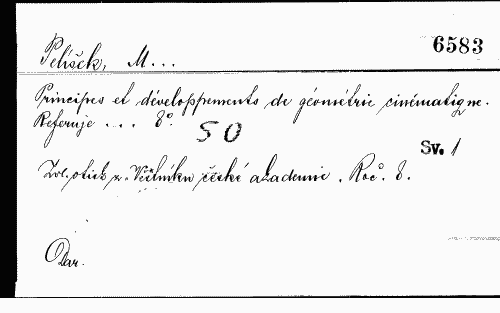 6583
Pelíšek, M...
Principes et développements de géométrie cinématique.
Referuje ... 8°.
50
Sv. 1
Zvl. otisk z. Věstníku české akademie. Roč. 8.
Dar.